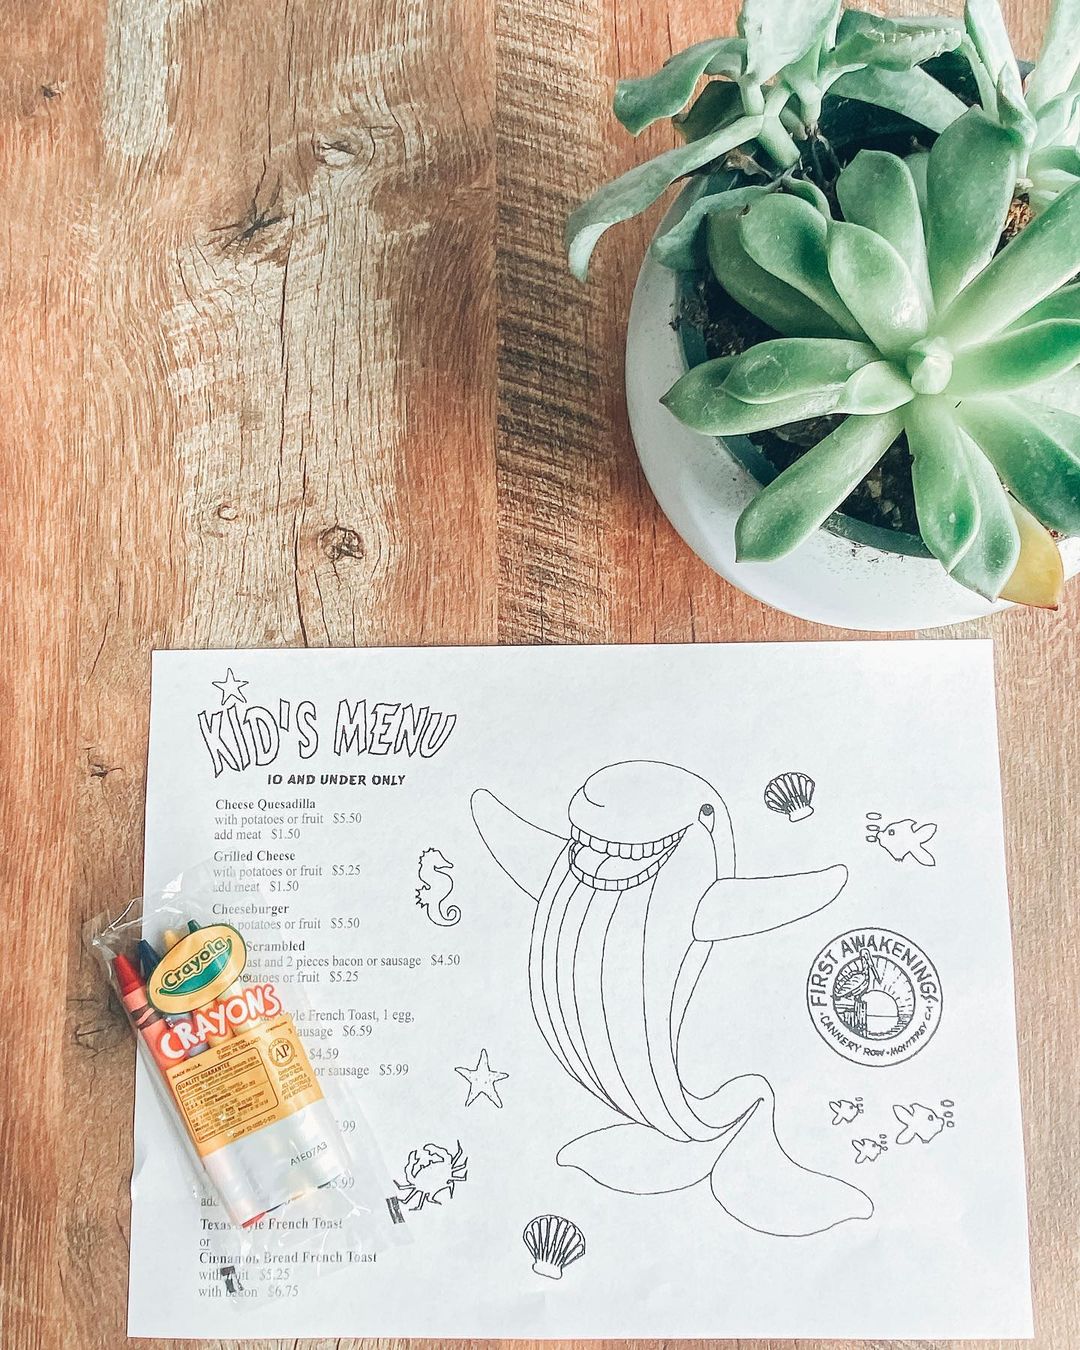 KID'S MENU
10 AND UNDER ONLY
Cheese Quesadilla
with potatoes or fruit $5.50
add meat $1.50
Grilled Cheese
with potatoes or fruit $5.25
add meat $1.50
Cheeseburger
with potatoes or fruit $5.50
Scrambled
and 2 pieces bacon or sausage $4.50
potatoes or fruit $5.25
Style French Toast, 1 egg,
sausage $6.59
$4.59
or sausage $5.99
.99
$5.99
add
Texas Style French Toast
or
Cinnamon Bread French Toast
with fruit $5.25
with bacon $6.75
Crayola
CRAYONS
MADE IN U.S.A.
QUALITY GUARANTEE
AP
A1E07A3
FIRST AWAKENINGS
CANNERY ROW - MONTEREY CA